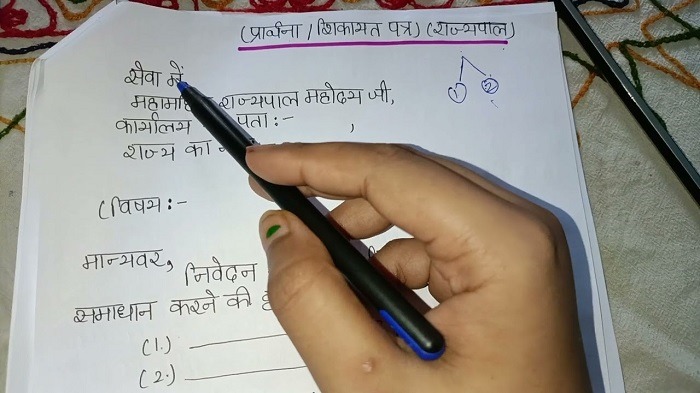 (प्रार्थना / शिकायत पत्र) (राज्यपाल)
1 2
सेवा में
राज्यपाल महोदय जी,
कार्यालय पता :- ,
राज्य का
विषय :-
मान्यवर,
निवेदन
समाधान करने की
(1.)
(2.)